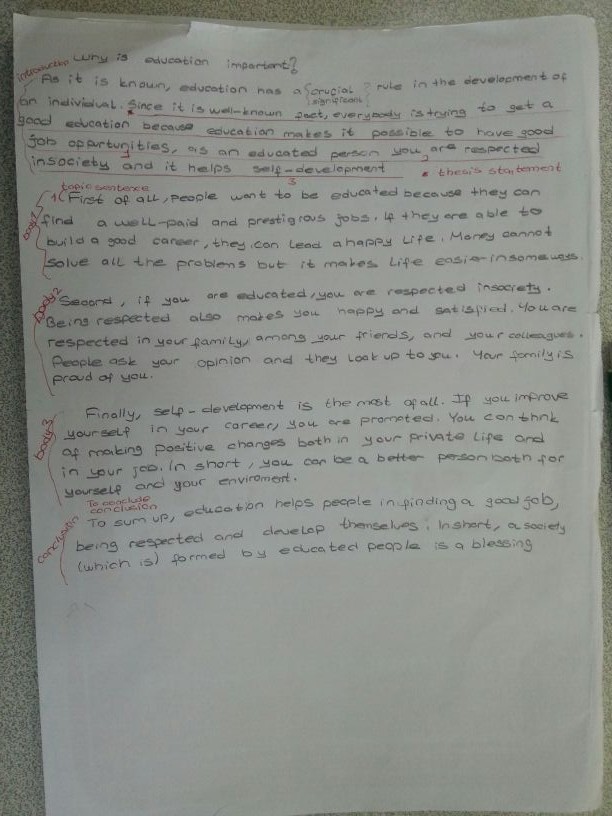 Why is education important?
introduction
As it is known, education has a {crucial significant} rule in the development of
an individual. * Since it is well-known fact, everybody is trying to get a
good education because education makes it possible to have good
job oppurtunities, as an educated person you are respected
insociety and it helps self-development * thesis statement
3
topic sentence
body 1
1( First of all, people want to be educated because they can
find a well-paid and prestigious jobs. If they are able to
build a good career, they can lead a happy life. Money cannot
solve all the problems but it makes life easier insomeways.
body 2
Second, if you are educated, you are respected insociety.
Being respected also makes you happy and satisfied. You are
respected in your family, among your friends, and your colleagues.
People ask your opinion and they look up to you. Your family is
proud of you.
body 3
Finally, self-development is the most of all. If you improve
yourself in your career, you are promoted. You can thnk
of making positive changes both in your private life and
in your job. In short, you can be a better person both for
yourself and your enviroment.
To conclude
conclusion
conclusion
To sum up, education helps people in finding a good job,
being respected and develop themselves. Inshort, a society
(which is) formed by educated people is a blessing